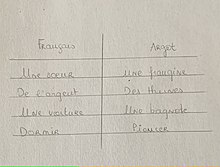 Français Argot
Une sœur Une frangine
De l'argent Des thunes
Une voiture Une bagnole
Dormir Pioncer